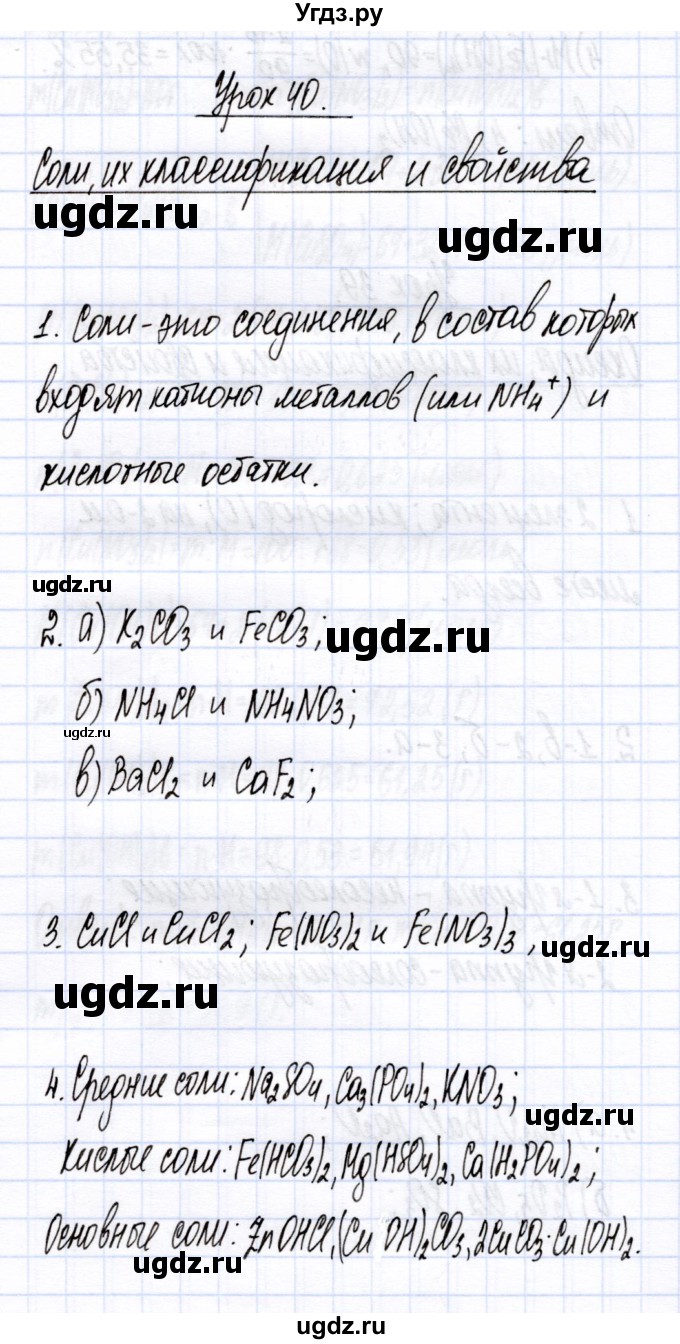 Угдз.ру
Урок 40.
Соли, их классификация и свойства
ugdz.ru
ugdz.ru
1. Соли - это соединения, в состав которых
входят катионы металлов (или NH4⁺) и
кислотные остатки.
ugdz.ru
2. а) K2CO3 и FeCO3; ugdz.ru
б) NH4Cl и NH4NO3;
ugdz.ru
в) BaCl2 и CaF2;
3. CuCl и CuCl2, Fe(NO3)2 и Fe(NO3)3, ugdz.ru
ugdz.ru
4. Средние соли: Na2SO4, Ca3(PO4)2, KNO3;
ugdz.ru
Кислые соли: Fe(HCO3)2, Mg(HSO4)2, Ca(H2PO4)2;
Основные соли: ZnOHCl, (CuOH)2CO3, 2CuCO3·Cu(OH)2.
ugdz.ru
ugdz.ru